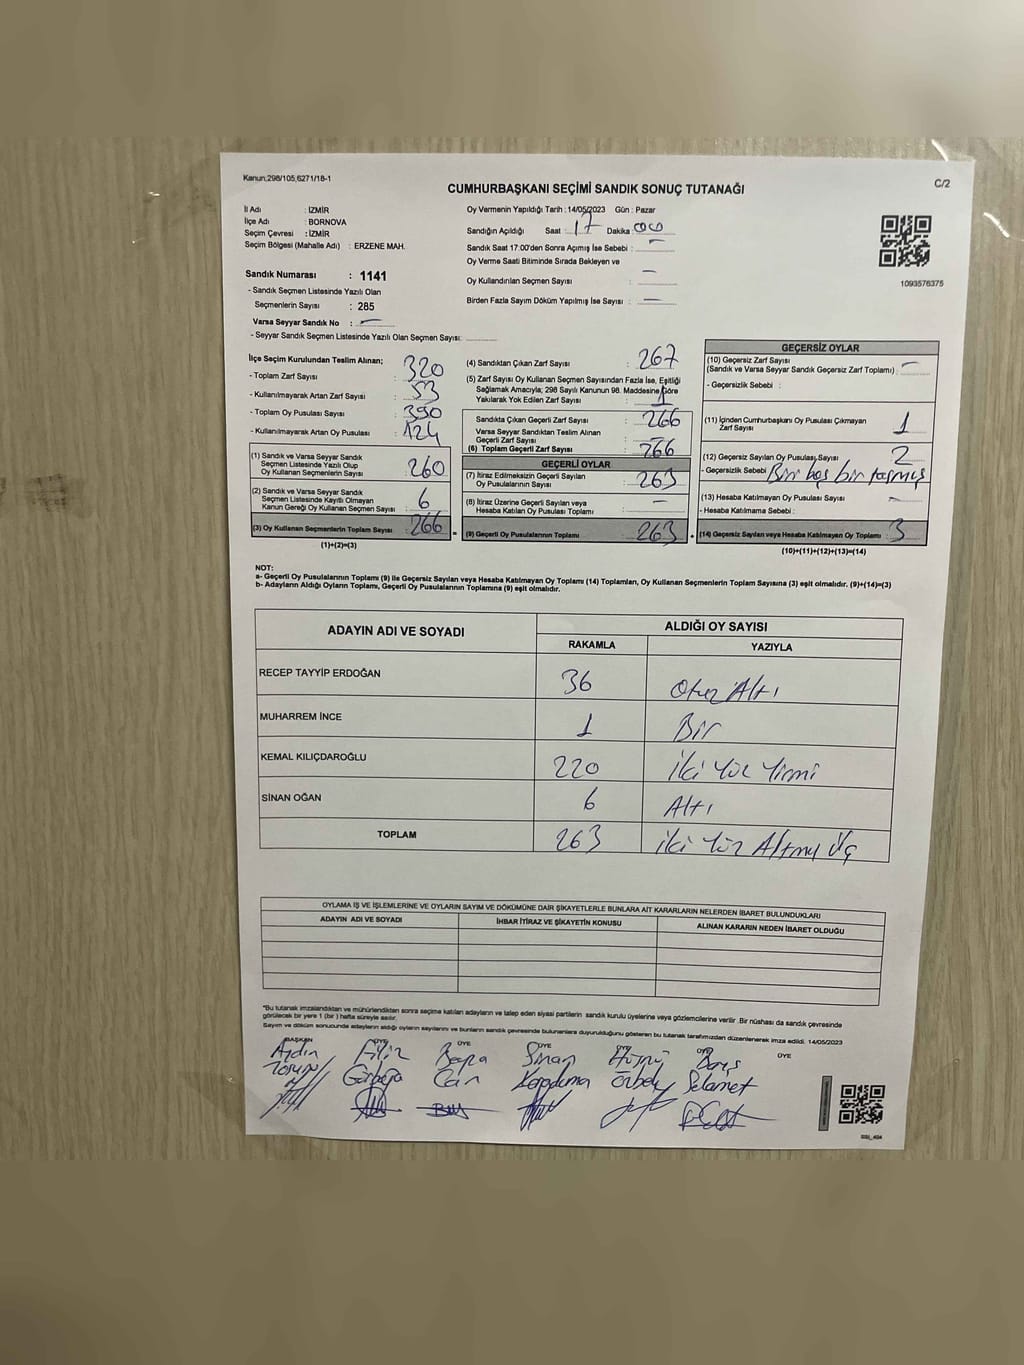 Kanun;298/105,6271/18-1
C/2
CUMHURBAŞKANI SEÇİMİ SANDIK SONUÇ TUTANAĞI
İl Adı : İZMİR
İlçe Adı : BORNOVA
Seçim Çevresi : İZMİR
Seçim Bölgesi (Mahalle Adı) : ERZENE MAH.
Sandık Numarası : 1141
- Sandık Seçmen Listesinde Yazılı Olan
Seçmenlerin Sayısı : 285
Varsa Seyyar Sandık No : —
- Seyyar Sandık Seçmen Listesinde Yazılı Olan Seçmen Sayısı:
Oy Vermenin Yapıldığı Tarih : 14/05/2023 Gün : Pazar
Sandığın Açıldığı Saat : 17 Dakika : 00
Sandık Saat 17:00'den Sonra Açımış İse Sebebi : —
Oy Verme Saati Bitiminde Sırada Bekleyen ve
Oy Kullandırılan Seçmen Sayısı : —
Birden Fazla Sayım Döküm Yapılmış İse Sayısı : —
1093576375
İlçe Seçim Kurulundan Teslim Alınan;
- Toplam Zarf Sayısı : 320
- Kullanılmayarak Artan Zarf Sayısı : 53
- Toplam Oy Pusulası Sayısı : 390
- Kullanılmayarak Artan Oy Pusulası : 124
(1) Sandık ve Varsa Seyyar Sandık
Seçmen Listesinde Yazılı Olup
Oy Kullanan Seçmenlerin Sayısı : 260
(2) Sandık ve Varsa Seyyar Sandık
Seçmen Listesinde Kayıtlı Olmayan
Kanun Gereği Oy Kullanan Seçmen Sayısı : 6
(3) Oy Kullanan Seçmenlerin Toplam Sayısı : 266
(1)+(2)=(3)
(4) Sandıktan Çıkan Zarf Sayısı : 267
(5) Zarf Sayısı Oy Kullanan Seçmen Sayısından Fazla İse, Eşitliği
Sağlamak Amacıyla; 298 Sayılı Kanunun 98. Maddesine Göre
Yakılarak Yok Edilen Zarf Sayısı : 1
Sandıkta Çıkan Geçerli Zarf Sayısı : 266
Varsa Seyyar Sandıktan Teslim Alınan
Geçerli Zarf Sayısı : —
(6) Toplam Geçerli Zarf Sayısı : 266
GEÇERLİ OYLAR
(7) İtiraz Edilmeksizin Geçerli Sayılan
Oy Pusulalarının Sayısı : 263
(8) İtiraz Üzerine Geçerli Sayılan veya
Hesaba Katılan Oy Pusulası Toplamı : —
(9) Geçerli Oy Pusulalarının Toplamı : 263
GEÇERSİZ OYLAR
(10) Geçersiz Zarf Sayısı
(Sandık ve Varsa Seyyar Sandık Geçersiz Zarf Toplamı) : —
- Geçersizlik Sebebi :
(11) İçinden Cumhurbaşkanı Oy Pusulası Çıkmayan
Zarf Sayısı : 1
(12) Geçersiz Sayılan Oy Pusulası Sayısı : 2
- Geçersizlik Sebebi : Biri boş bir taşmış
(13) Hesaba Katılmayan Oy Pusulası Sayısı : —
- Hesaba Katılmama Sebebi :
(14) Geçersiz Sayılan veya Hesaba Katılmayan Oy Toplamı : 3
(10)+(11)+(12)+(13)=(14)
NOT:
a- Geçerli Oy Pusulalarının Toplamı (9) ile Geçersiz Sayılan veya Hesaba Katılmayan Oy Toplamı (14) Toplamları, Oy Kullanan Seçmenlerin Toplam Sayısına (3) eşit olmalıdır. (9)+(14)=(3)
b- Adayların Aldığı Oyların Toplamı, Geçerli Oy Pusulalarının Toplamına (9) eşit olmalıdır.
ADAYIN ADI VE SOYADI
ALDIĞI OY SAYISI
RAKAMLA YAZIYLA
RECEP TAYYİP ERDOĞAN 36 Otuz Altı
MUHARREM İNCE 1 Bir
KEMAL KILIÇDAROĞLU 220 İki Yüz Yirmi
SİNAN OĞAN 6 Altı
TOPLAM 263 İki Yüz Altmış Üç
OYLAMA İŞ VE İŞLEMLERİNE VE OYLARIN SAYIM VE DÖKÜMÜNE DAİR ŞİKAYETLERLE BUNLARA AİT KARARLARIN NELERDEN İBARET BULUNDUKLARI
ADAYIN ADI VE SOYADI İHBAR İTİRAZ VE ŞİKAYETİN KONUSU ALINAN KARARIN NEDEN İBARET OLDUĞU
*Bu tutanak imzalandıktan ve mühürlendikten sonra seçime katılan adayların ve talep eden siyasi partilerin sandık kurulu üyelerine veya gözlemcilerine verilir. Bir nüshası da sandık çevresinde
görülecek bir yere 1 (bir) hafta süreyle asılır.
Sayım ve döküm sonucunda adayların aldığı oyların sayılarını ve bunların sandık çevresinde bulunanlara duyurulduğunu gösteren bu tutanak tarafımızdan düzenlenerek imza edildi. 14/05/2023
BAŞKAN ÜYE ÜYE ÜYE ÜYE ÜYE ÜYE
Aydın Filiz Sinan Hüsnü Barış
Can Karaduma Selamet